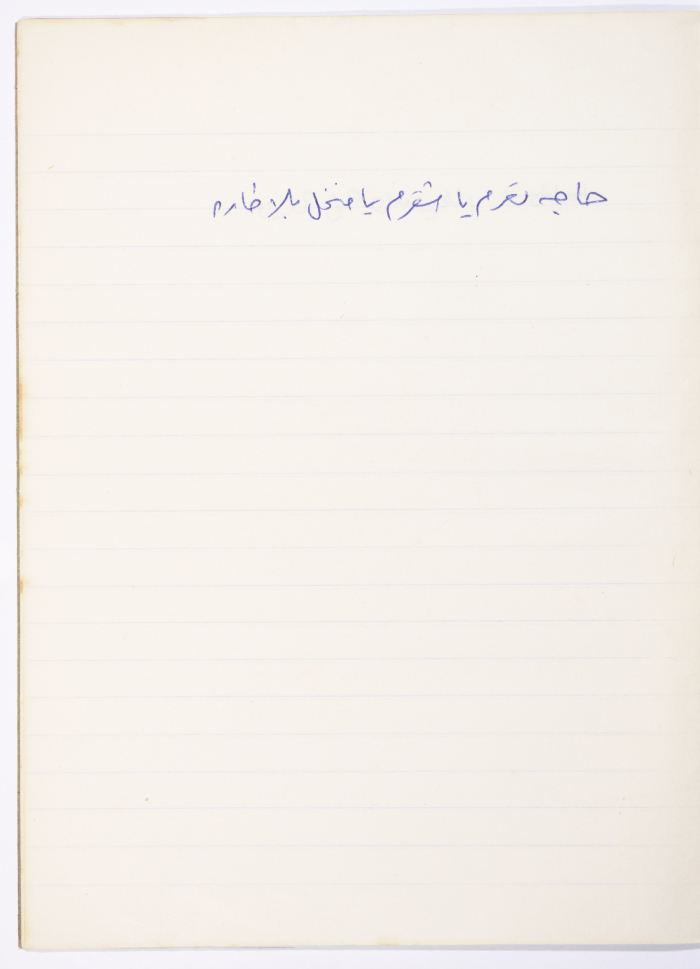 حاجه تقرم يا اشقرم يا منخل بلا طاره